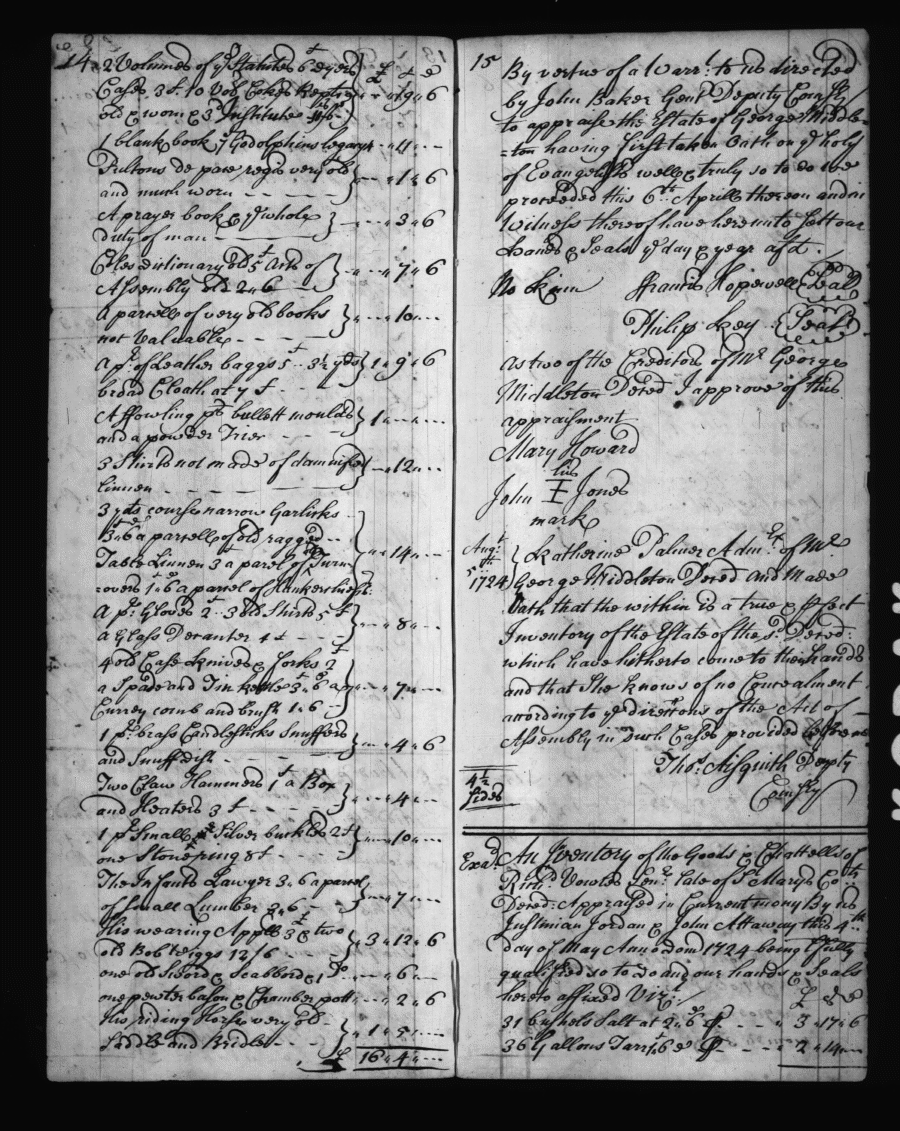 14
2 Volumes of ye Statutes 6s dyers
Cases 3s to Vol Cokes Reports
old & worn & 3d Institutes
1 blank book 7 Godolphins legacys " 4 "
Pultons de pace regis very old
and much worn " 1 " 6
A prayer book & ye whole
duty of man " 3 " 6
Coles dictionary old 5s Acts of
Assembly old 2 " 6 " 7 " 6
a parcell of very old books
not Valuable " 10 "
a pr of Leather baggs 5s 3½ yds
broad Cloath at 7s 1 " 9 " 6
A ffowling ps bullett moulds
and a powder Trier 1 " "
3 Shirts not made of damnified
linnen " 12 "
3 yds course narrow Garlicks
3 " 6 a parcell of old ragged
Table Linnen 3s a parcel of Turn
=overs 1 " 6 a parcel of Hankerchiefs " 14 "
A pr Gloves 2s 3 old Shirts 5s
a Glass Decanter 1s " 8 "
4 old Case knives & forks 2s
a Spade and Tin kettle 3 " 6 a
Currey comb and brush 1 " 6 " 7 "
1 pr brass Candlesticks Snuffers
and Snuff dish " 4 " 6
Two Claw Hammers 1s a Box
and Heaters 3s " 4 "
1 pr Small Silver buckles 2s
one Stone ring 8s " 10 "
The Infants Lawyer 3 " 6 a parcel
of Small Lumber 3 " 6 " 7 "
His wearing Appll 3£ & two
old Bob Wiggs 12/6 3 " 12 " 6
one old Sword & Scabbord & 1 Do " 6 "
one pewter bason & Chamber pott " 2 " 6
his riding Horse very old
Saddle and Bridle " 1 " 5 "
£ 16 " 4 "
15
By vertue of a Warrt to us directed
by John Baker Gent Deputy Comsry
to appraise the Estate of George Middle
=ton having first taken Oath on ye holy
of Evangelists well & truly so to do we
proceeded this 6th Aprill thereon and in
Witness thereof have hereunto Sett our
hands & Seals ye day & year afd.
No kinn ffrancis Hopewell Seal
Philip Key Seal
as two of the Creditors of Mr George
Middleton Deced I approve of this
appraisment
Mary Howard
his
John I Jones
mark
Augt
5th
1724
Katherine Palmer Admx of Mr
George Middleton Deced and Made
Oath that the within is a true & pfect
Inventory of the Estate of the sd Deced:
which have hitherto come to their hands
and that She knows of no Concealment
according to ye directions of the Act of
Assembly in Such Cases provided before me
Thos Aisquith Depty
Comsry
4½
sides
Exad
An Iventory of the Goods & Chattells of
Richd Vowles Senr late of St Marys Coty
Deced: Appraised in Current mony By us
Justinian Jordan & John Attaway this 4th
day of May Anno dom 1724 being
qualified so to do and our hands & Seals
hereto affixed Vizt £ s d
31 bushels Salt at 2 " 6 3 " 17 " 6
36 Gallons Tarr 2 " 14 "